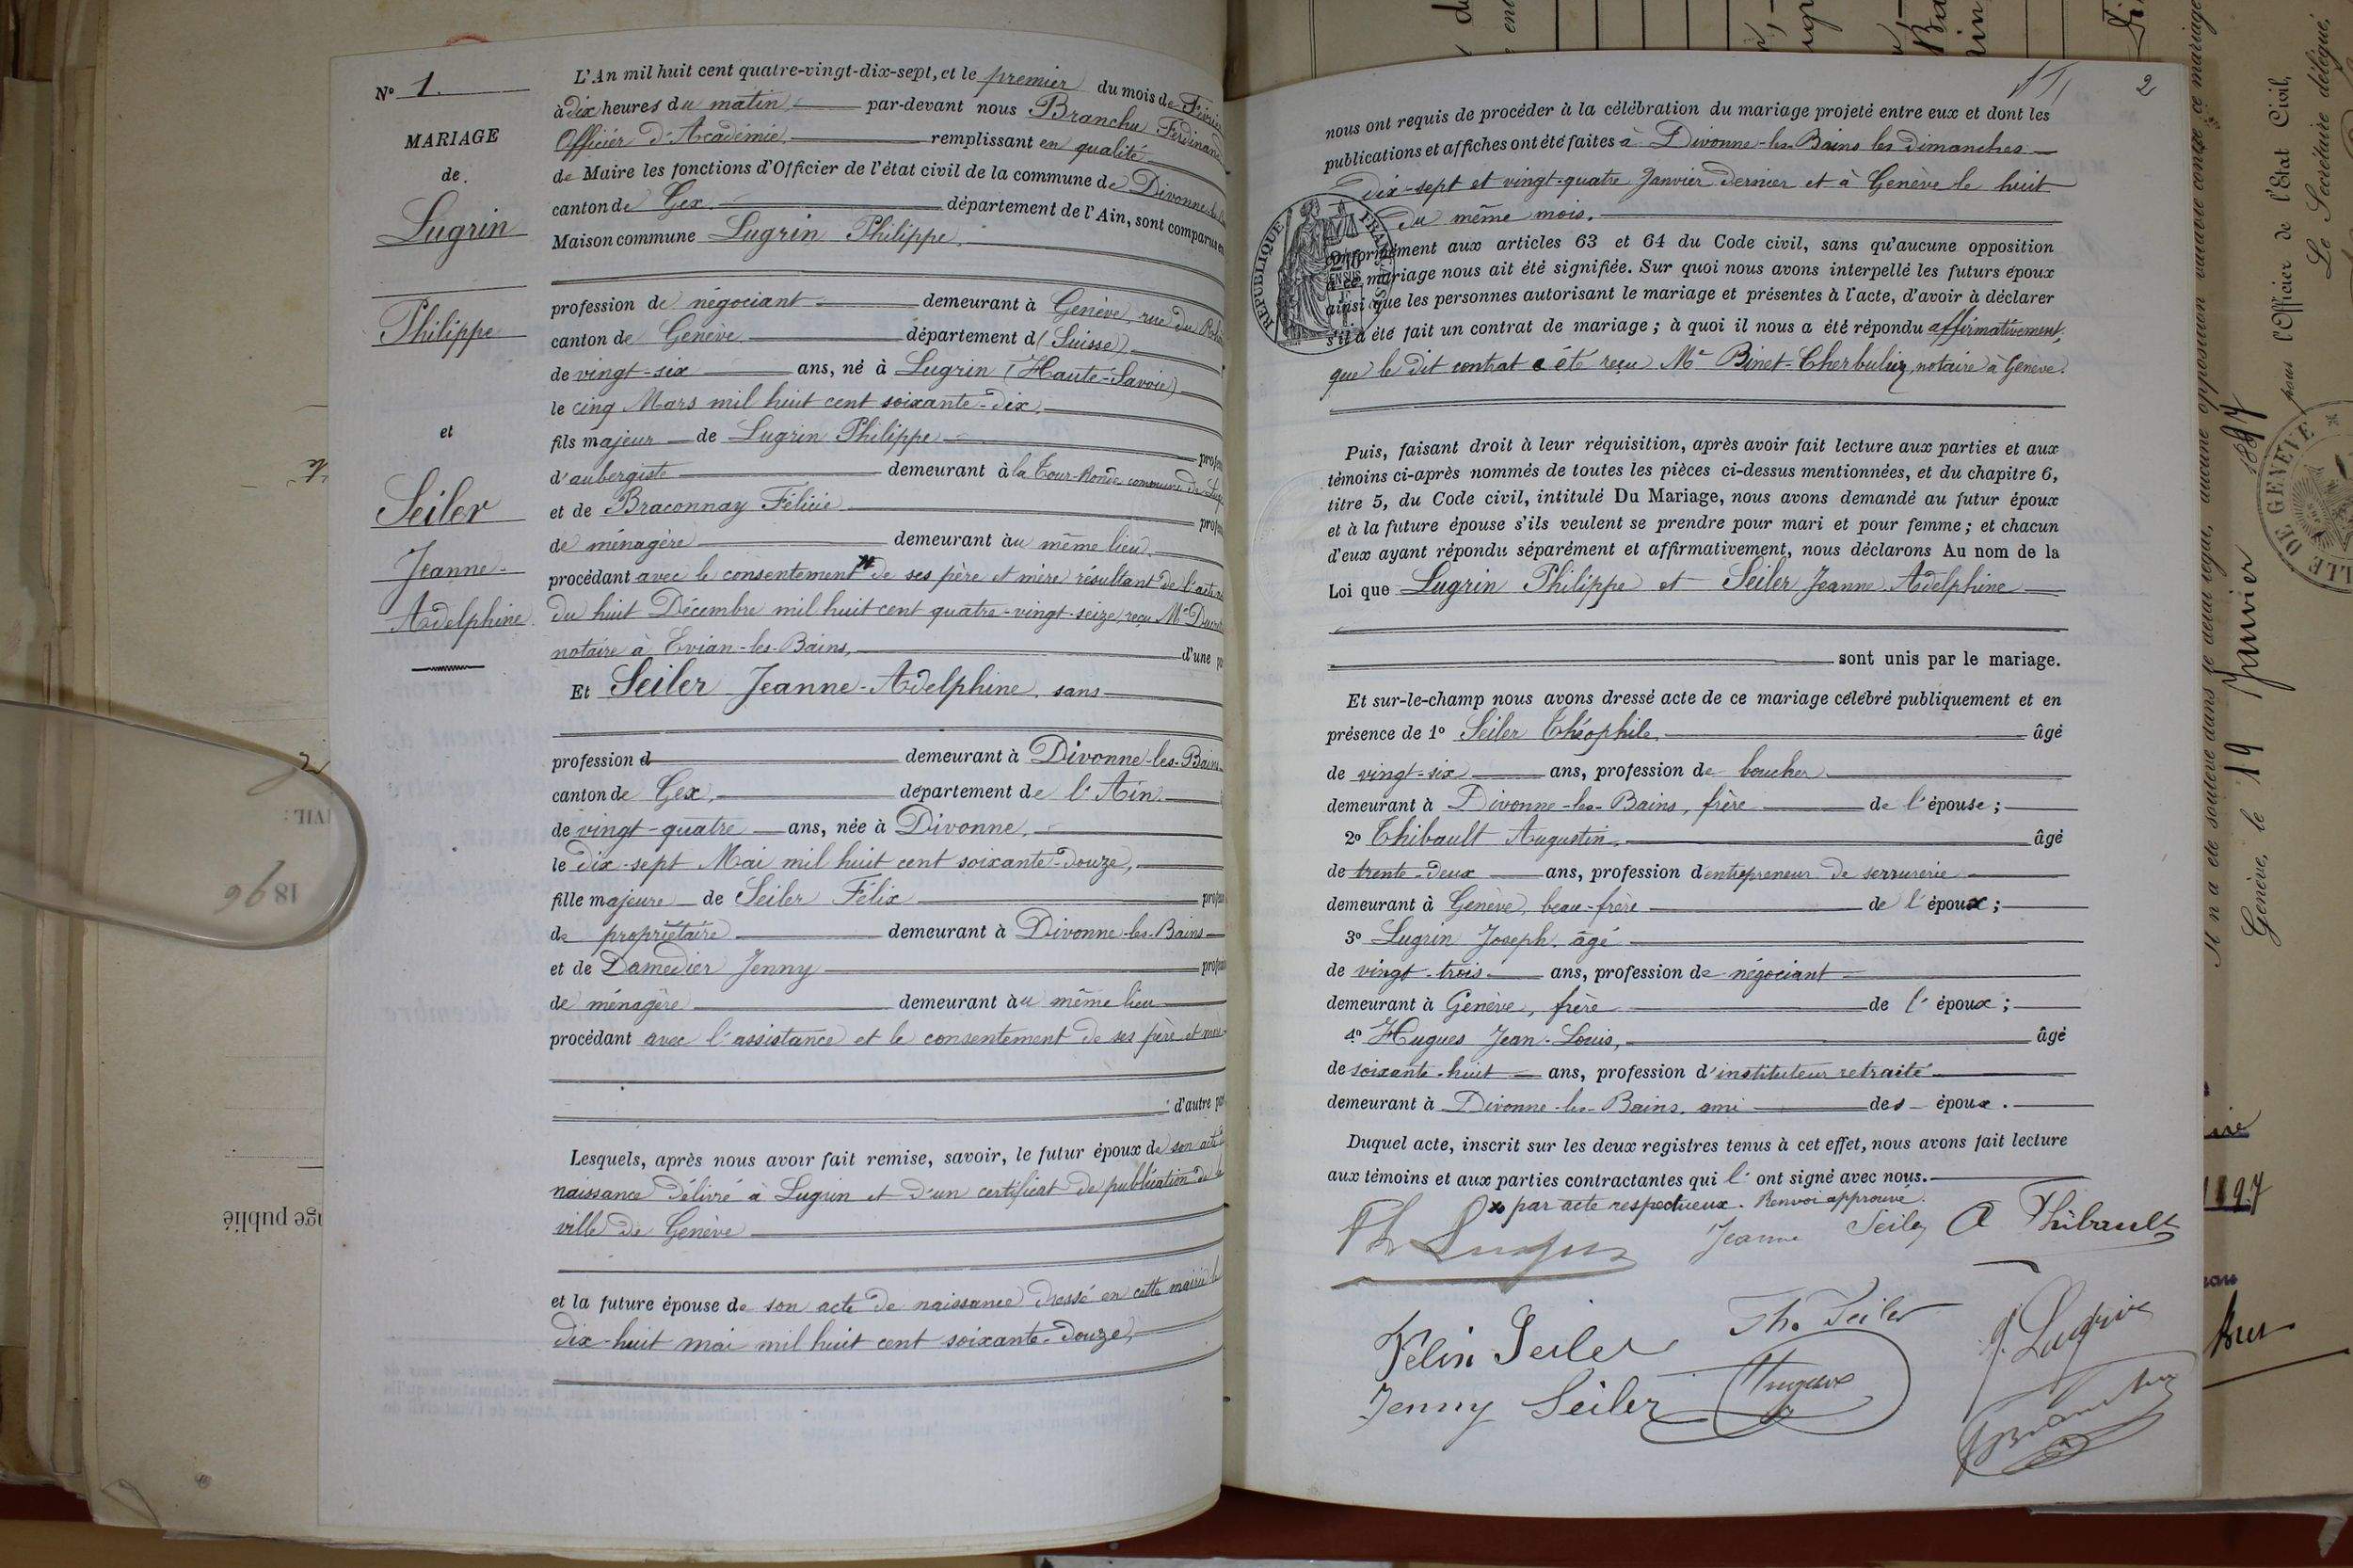 N° 1.
MARIAGE
de
Lugrin
Philippe
et
Seiler
Jeanne-
Adelphine.
L'An mil huit cent quatre-vingt-dix-sept, et le premier du mois de Février
à dix heures du matin, par-devant nous Branchu Ferdinand
Officier d'Académie, remplissant en qualité
de Maire les fonctions d'Officier de l'état civil de la commune de Divonne-les-
canton de Gex, département de l'Ain, sont comparus en
Maison commune Lugrin Philippe,
profession de négociant demeurant à Genève, rue du
canton de Genève département d (Suisse)
de vingt-six ans, né à Lugrin (Haute-Savoie)
le cinq Mars mil huit cent soixante-dix,
fils majeur de Lugrin Philippe profes
d'aubergiste demeurant à la Tour-Ronde, commune de Lug
et de Braconnay Félicie profes
de ménagère demeurant au même lieu,
procédant avec le consentement de ses père et mère résultant de l'acte
du huit Décembre mil huit cent quatre-vingt-seize, reçu Me
notaire à Evian-les-Bains, d'une pa
Et Seiler Jeanne-Adelphine, sans
profession d demeurant à Divonne-les-Bains
canton de Gex, département de l'Ain,
de vingt-quatre ans, née à Divonne,
le dix-sept Mai mil huit cent soixante-douze,
fille majeure de Seiler Félix profes
de propriétaire demeurant à Divonne-les-Bains
et de Damedier Jenny profes
de ménagère demeurant au même lieu
procédant avec l'assistance et le consentement de ses père et mère
d'autre par
Lesquels, après nous avoir fait remise, savoir, le futur époux de son acte de
naissance délivré à Lugrin et d'un certificat de publication de la
ville de Genève
et la future épouse de son acte de naissance dressé en cette mairie le
dix-huit mai mil huit cent soixante-douze,
2
nous ont requis de procéder à la célébration du mariage projeté entre eux et dont les
publications et affiches ont été faites à Divonne-les-Bains les dimanches
dix-sept et vingt-quatre Janvier dernier et à Genève le huit
du même mois.
RÉPUBLIQUE FRANÇAISE
conformément aux articles 63 et 64 du Code civil, sans qu'aucune opposition
à ce mariage nous ait été signifiée. Sur quoi nous avons interpellé les futurs époux
ainsi que les personnes autorisant le mariage et présentes à l'acte, d'avoir à déclarer
s'il a été fait un contrat de mariage ; à quoi il nous a été répondu affirmativement,
que le dit contrat a été reçu Me Binet-Cherbuliez, notaire à Genève.
Puis, faisant droit à leur réquisition, après avoir fait lecture aux parties et aux
témoins ci-après nommés de toutes les pièces ci-dessus mentionnées, et du chapitre 6,
titre 5, du Code civil, intitulé Du Mariage, nous avons demandé au futur époux
et à la future épouse s'ils veulent se prendre pour mari et pour femme ; et chacun
d'eux ayant répondu séparément et affirmativement, nous déclarons Au nom de la
Loi que Lugrin Philippe et Seiler Jeanne Adelphine
sont unis par le mariage.
Et sur-le-champ nous avons dressé acte de ce mariage célébré publiquement et en
présence de 1° Seiler Théophile, âgé
de vingt-six ans, profession de boucher
demeurant à Divonne-les-Bains, frère de l'épouse ;
2° Thibault Augustin, âgé
de trente-deux ans, profession d'entrepreneur de serrurerie
demeurant à Genève, beau-frère de l'époux ;
3° Lugrin Joseph, âgé
de vingt-trois ans, profession de négociant
demeurant à Genève, frère de l'époux ;
4° Hugues Jean-Louis, âgé
de soixante-huit ans, profession d'instituteur retraité
demeurant à Divonne-les-Bains, ami des époux.
Duquel acte, inscrit sur les deux registres tenus à cet effet, nous avons fait lecture
aux témoins et aux parties contractantes qui l'ont signé avec nous.
x par acte respectueux. Renvoi approuvé.
Ph Lugrin Jeanne Seiler A Thibault
Félix Seiler Th. Seiler J. Lugrin
Jenny Seiler Hugues
Il n'a été soulevé dans le délai légal, aucune opposition contre ce mariage
Genève, le 19 Janvier 1897
pour l'Officier de l'Etat Civil,
Le Secrétaire délégué,
VILLE DE GENÈVE
1896